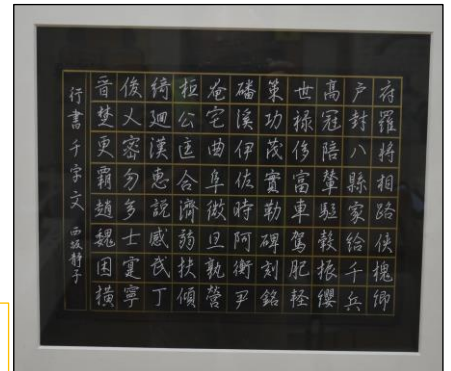 府羅將相路侠槐卿
戸封八縣家給千兵
高冠陪輦駈轂振纓
世禄侈富車駕肥軽
策功茂實勒碑刻銘
磻溪伊佐時阿衡尹
奄宅曲阜微旦孰營
桓公匡合濟弱扶傾
綺廻漢恵説感武丁
俊乂密勿多士寔寧
晋楚更覇趙魏困横
行書千字文 西坂静子